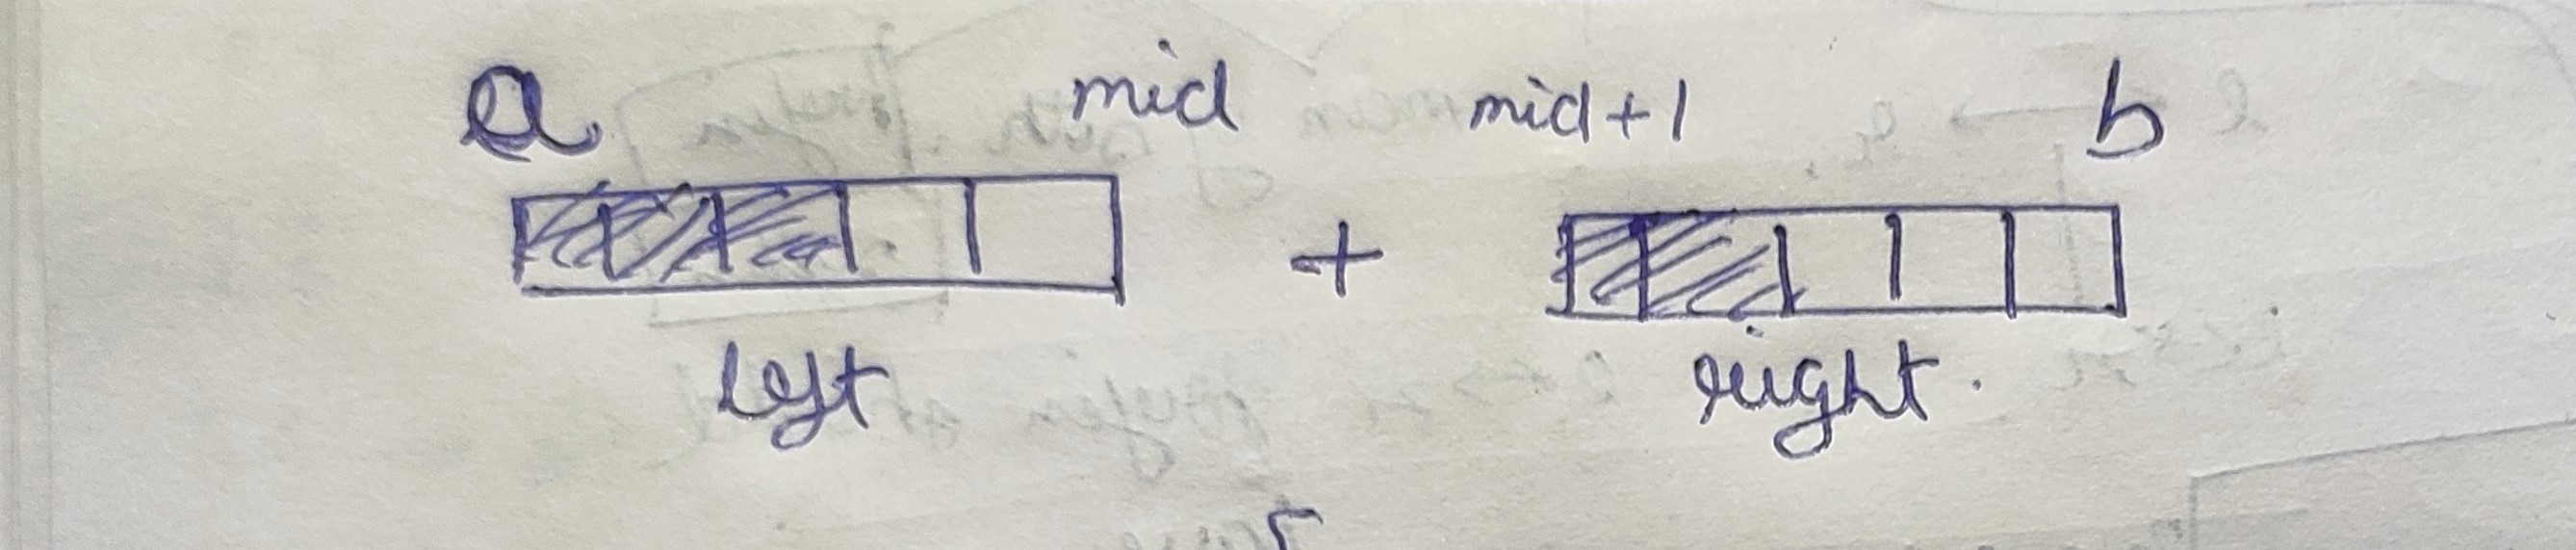 a mid mid+1 b
+
left right.